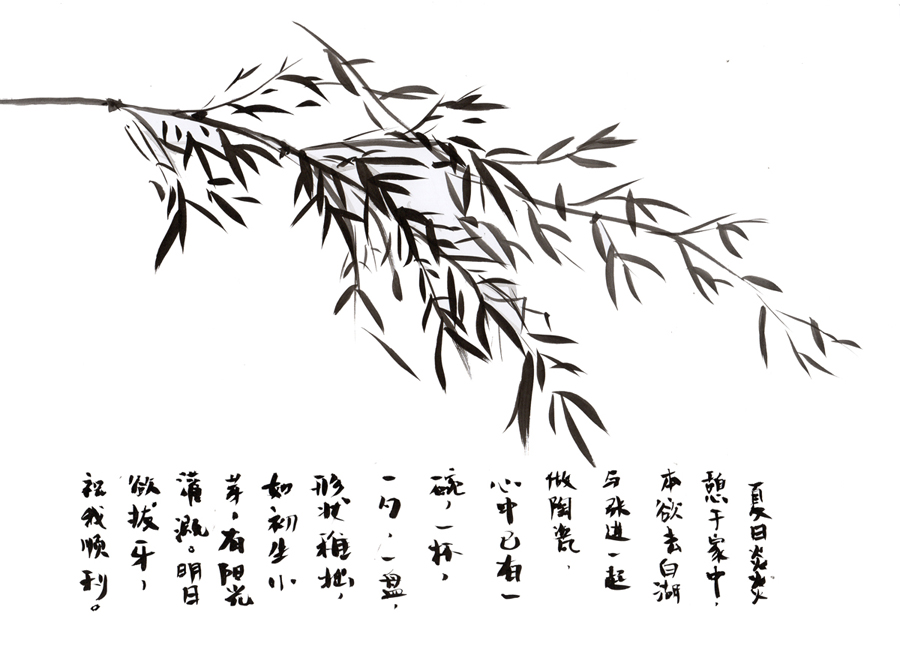 夏日炎炎
憩于家中，
本欲去白湖
与张进一起
做陶瓷，
心中已有一
碗，一杯，
一勺，一盘，
形状稚拙，
如初生小
芽，有阳光
灌溉。明日
欲拔牙，
祝我顺利。